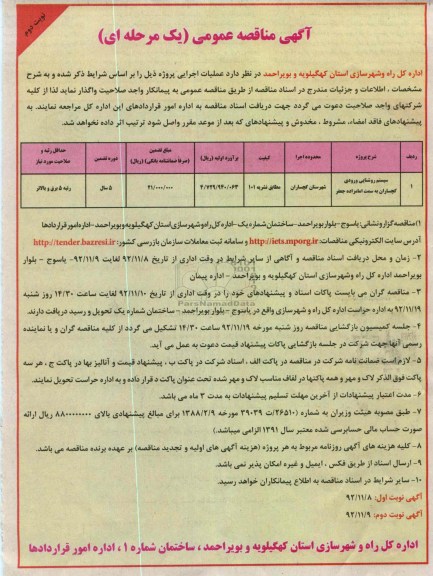 نوبت دوم
آگهی مناقصه عمومی (یک مرحله ای)
اداره کل راه وشهرسازی استان کهگیلویه و بویراحمد در نظر دارد عملیات اجرایی پروژه ذیل را بر اساس شرایط ذکر شده و به شرح
مشخصات ، اطلاعات و جزئیات مندرج در اسناد مناقصه از طریق مناقصه عمومی به پیمانکار واجد صلاحیت واگذار نماید لذا از کلیه
شرکتهای واجد صلاحیت دعوت می گردد جهت دریافت اسناد مناقصه به اداره امور قراردادهای این اداره کل مراجعه نمایند. به
پیشنهادهای فاقد امضاء، مشروط ، مخدوش و پیشنهادهای که بعد از موعد مقرر واصل شود ترتیب اثر داده نخواهد شد.
ردیف شرح پروژه محدوده اجرا کیفیت برآورد اولیه (ریال) مبلغ تضمین (صرفا ضمانتنامه بانکی) (ریال) دوره تضمین حداقل رتبه و صلاحیت مورد نیاز
۱ سیستم روشنایی ورودی گچساران به سمت امامزاده جعفر شهرستان گچساران مطابق نشریه ۱۰۱ ۴/۷۲۹/۹۴۰/۰۶۳ ۲۱/۰۰۰/۰۰۰ ۵ سال رتبه ۵ برق و بالاتر
۱) مناقصه گزار و نشانی: یاسوج - بلوار بویراحمد - ساختمان شماره یک - اداره کل راه و شهرسازی استان کهگیلویه وبویراحمد - اداره امور قراردادها
آدرس سایت الکترونیکی مناقصات: http://iets.mporg.ir و سامانه ثبت معاملات سازمان بازرسی کشور: http://tender.bazresi.ir
۲- زمان و محل دریافت اسناد مناقصه و آگاهی از سایر شرایط در وقت اداری از تاریخ ۹۲/۱۱/۸ لغایت ۹۲/۱۱/۹- یاسوج - بلوار
بویراحمد اداره کل راه وشهرسازی استان کهگیلویه و بویراحمد - اداره پیمان
۳- مناقصه گران می بایست پاکات اسناد و پیشنهادهای خود را در وقت اداری از تاریخ ۹۲/۱۱/۱۰ لغایت ساعت ۱۴/۳۰ روز شنبه
۹۲/۱۱/۱۹ به اداره حراست اداره کل راه و شهرسازی واقع در یاسوج - بلوار بویراحمد - ساختمان شماره یک تحویل و رسید دریافت دارند.
۴- جلسه کمیسیون بازگشایی مناقصه روز شنبه مورخه ۹۲/۱۱/۱۹ ساعت ۱۴/۳۰ تشکیل می گردد از کلیه مناقصه گران و یا نماینده
رسمی آنها جهت شرکت در جلسه بازگشایی پاکات پیشنهاد قیمت دعوت به عمل می آید.
۵- لازم است ضمانت نامه شرکت در مناقصه در پاکت الف ، اسناد شرکت در پاکت ب ، پیشنهاد قیمت و آنالیز بها در پاکت ج ، هر سه
پاکت فوق الذکر لاک و مهر و همه پاکتها در لفاف مناسب لاک و مهر شده تحت عنوان پاکت د قرار داده و به اداره حراست تحویل نمایند.
۶- مدت اعتبار پیشنهادات از آخرین مهلت تسلیم پیشنهادات به مدت ۳ ماه می باشد.
۷- طبق مصوبه هیئت وزیران به شماره ۲۶۵۱۰/ت ۳۹۰۳۹ مورخ ۱۳۸۸/۲/۹ برای مبالغ پیشنهادی بالای ۸۸۰۰۰۰۰۰۰۰ ریال ارائه
صورت حساب مالی حسابرسی شده معتبر سال ۱۳۹۱ الزامی میباشد.
۸- کلیه هزینه های آگهی روزنامه مربوط به هر پروژه (هزینه آگهی های اولیه و تجدید مناقصه) بر عهده برنده مناقصه می باشد.
۹- ارسال اسناد از طریق فکس ، ایمیل و غیره امکان پذیر نمی باشد.
۱۰- سایر شرایط در اسناد مناقصه به اطلاع پیمانکاران خواهد رسید.
آگهی نوبت اول: ۹۲/۱۱/۸
آگهی نوبت دوم: ۹۲/۱۱/۹
اداره کل راه و شهرسازی استان کهگیلویه و بویراحمد ، ساختمان شماره ۱ ، اداره امور قراردادها